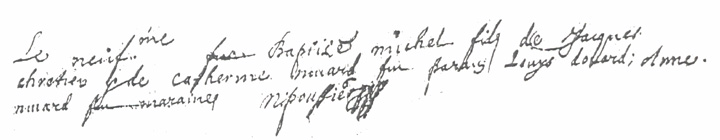 Le neuf.me fuc Baptizé michel fils de Jaques
chretien & de catherine nuard fu parain Louys douard; Anne
nuard fu maraine